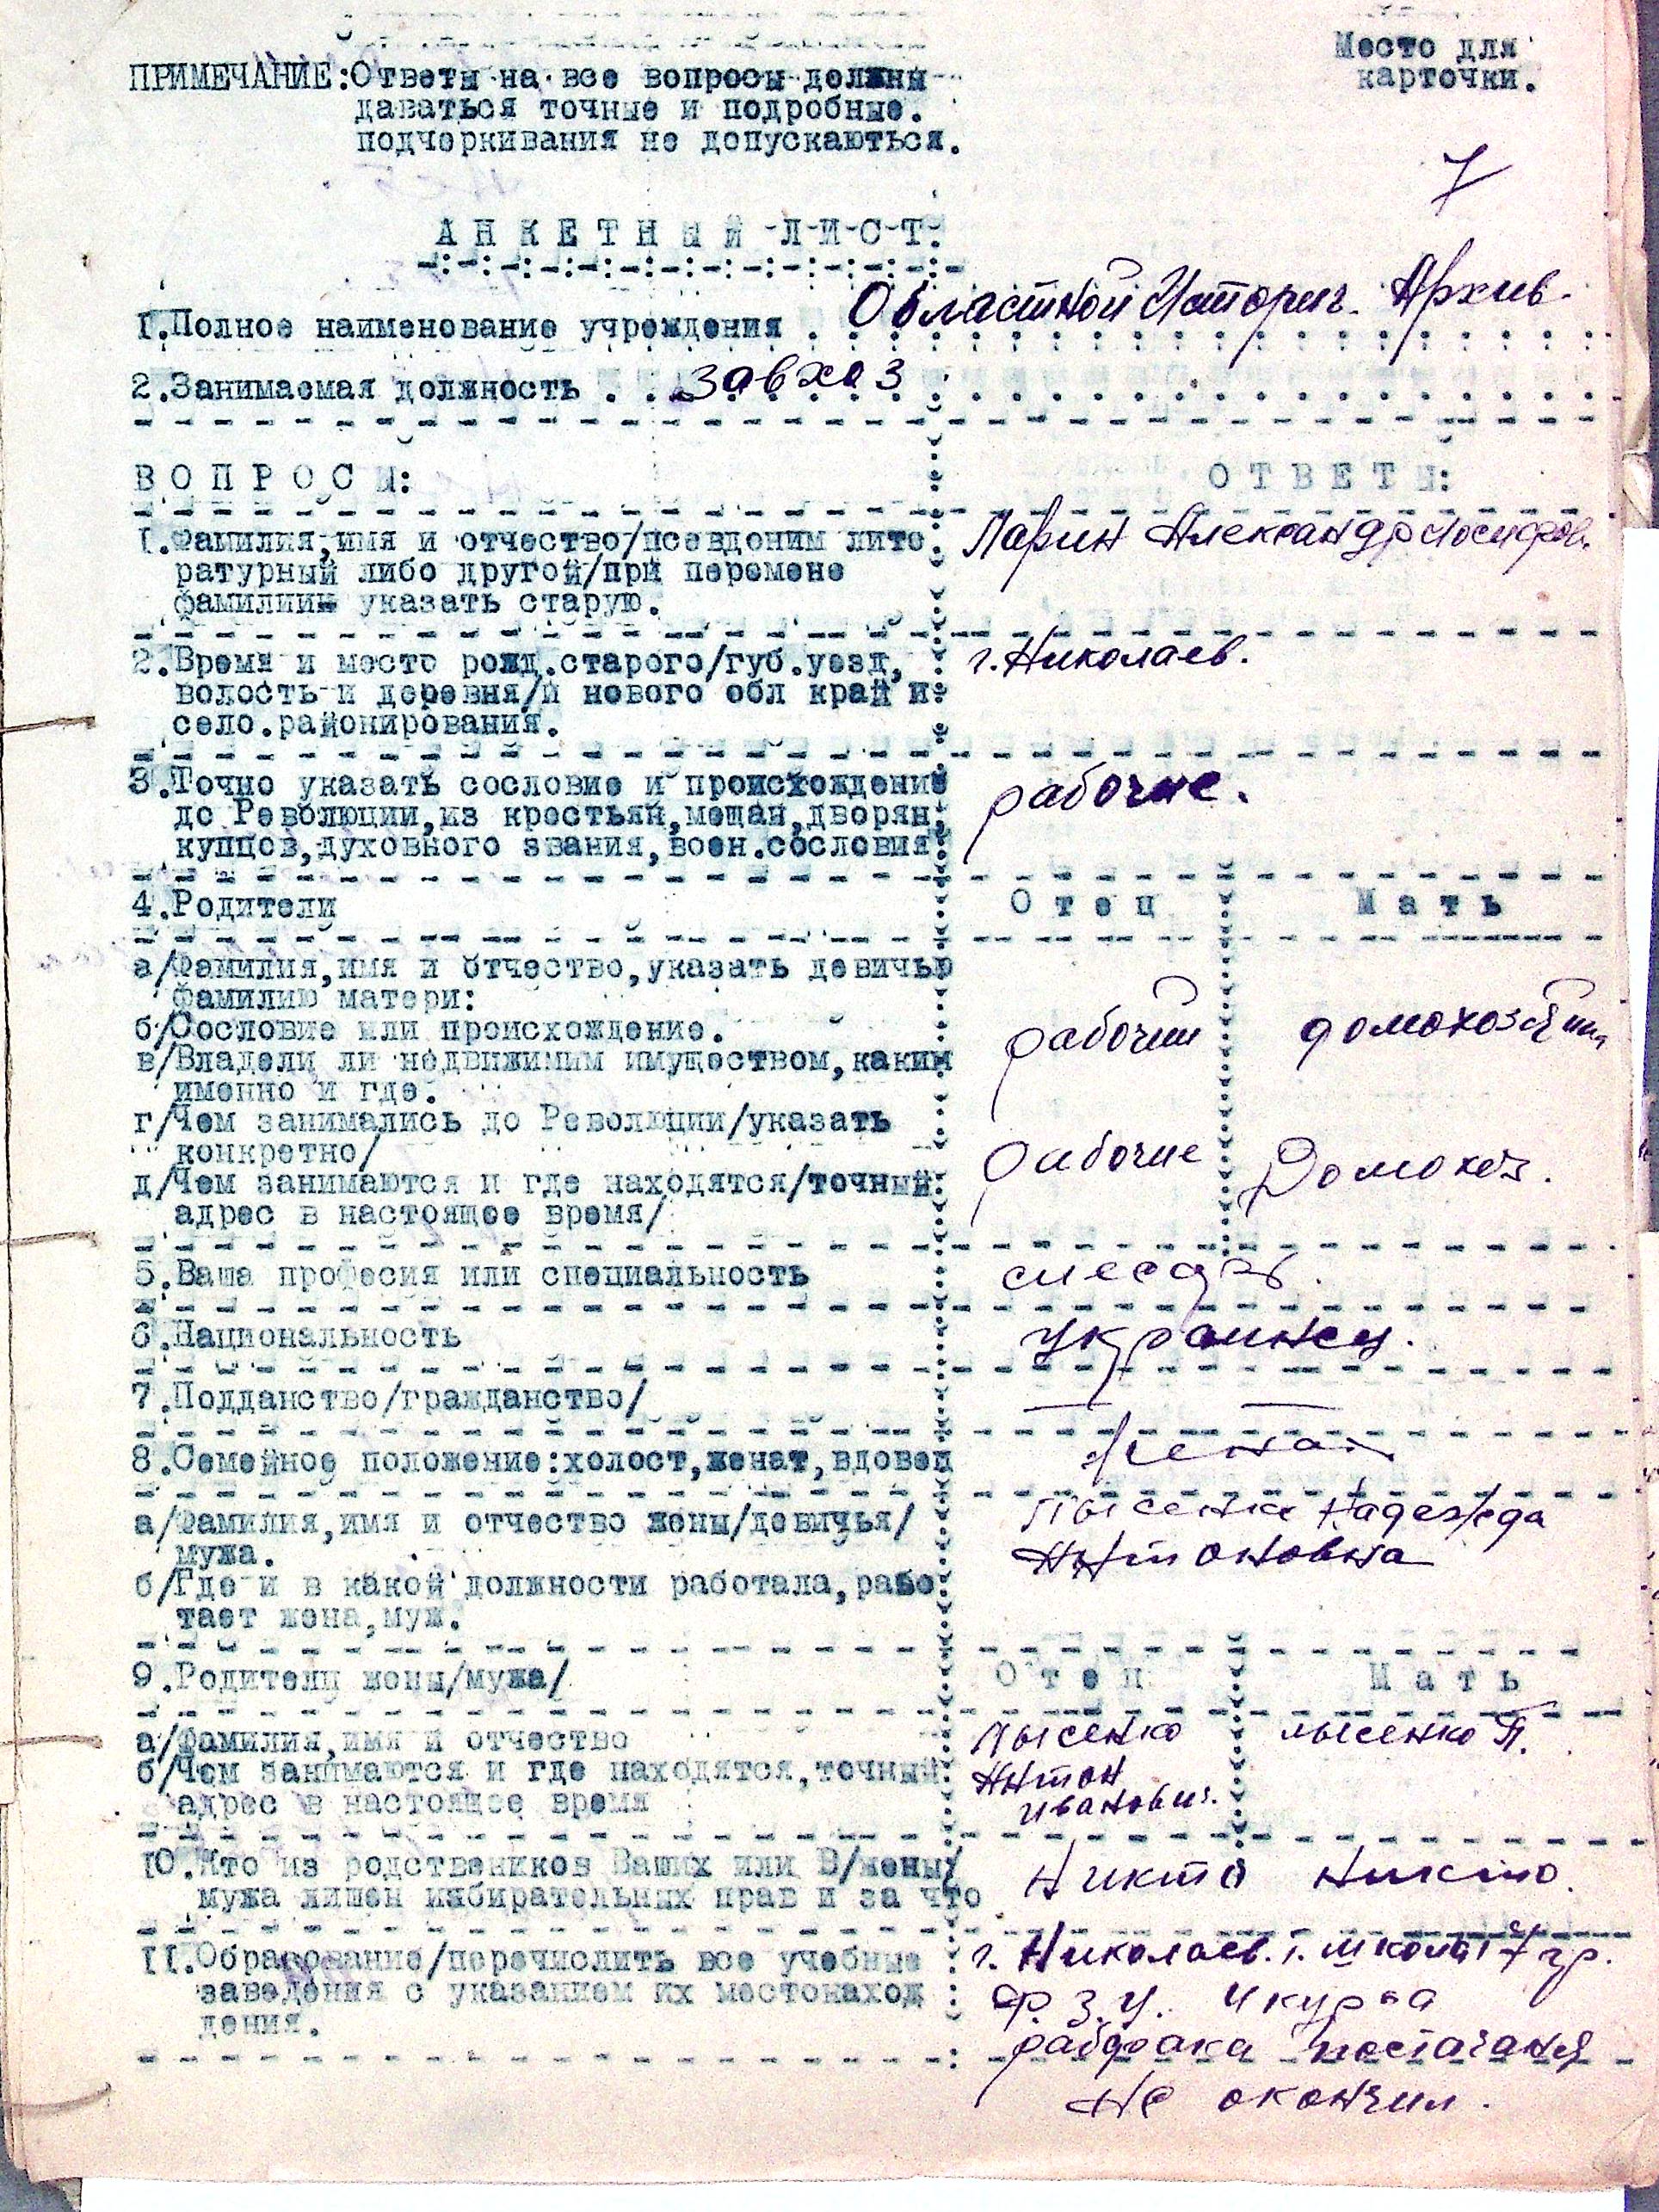 Место для
карточки.
ПРИМЕЧАНИЕ:Ответы на все вопросы должны
даваться точные и подробные.
подчеркивания не допускаються.
7
АНКЕТНЫЙ ЛИСТ.
1.Полное наименование учреждения . Областной Историч. Архив.
2.Занимаемая должность . . завхоз
ВОПРОСЫ: ОТВЕТЫ:
1.Фамилия,имя и отчество/псевдоним лите Ларин Александр Иосифов.
ратурный либо другой/при перемене
фамилиии указать старую.
2.Время и место рожд.старого/губ.уезд, г.Николаев.
волость и деревня/и нового обл край и
село.районирования.
3.Точно указать сословие и происхождение рабочие.
до Революции,из крестьян,мещан,дворян,
купцов,духовного звания,воен.сословия
4.Родители Отец Мать
а/Фамилия,имя и отчество,указать девичью
фамилию матери:
б/Сословие или происхождение. рабочий домохозяйка
в/Владели ли недвижимим имуществом,каким
именно и где.
г/Чем занимались до Революции/указать
конкретно/ рабочие Домохоз.
д/Чем занимаются и где находятся/точный
адрес в настоящее время/
5.Ваша професия или специальность слесарь.
6.Национальность украинец.
7.Подданство/гражданство/ — —
8.Семейное положение:холост,женат,вдовец женат
а/Фамилия,имя и отчество жены/девичья/ Лысенко Надежда
мужа. Антоновна
б/Где и в какой должности работала,рабо
тает жена,муж.
9.Родители жены/мужа/ Отец Мать
а/Фамилия,имя и отчество Лысенко лысенко П.
б/Чем занимаются и где находятся,точный Антон
адрес в настоящее время Иванович.
10.Кто из родствеников Ваших или В/жены/ Никто Никто.
мужа лишен избирательных прав и за что
11.Образование/перечислить все учебные г. Николаев. 7 гр.
заведения с указанием их местонахож Ф.З.У. Ұ курса
дения. рабфака
не окончил.